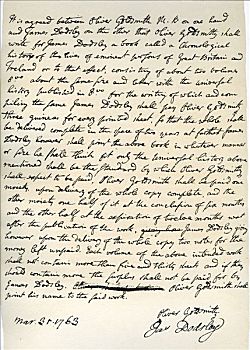 It is agreed between Oliver Goldsmith M.B. on one hand
and James Dodsley on the other that Oliver Goldsmith shall
write for James Dodsley a book called a Chronological
history of the lives of eminent persons of Great Britain and
Ireland or to that effect, consisting of about two volumes
8vo about the same size and letter with the universal
history published in 8vo for the writing of which and com
piling the same James Dodsley shall pay Oliver Goldsmith
three guineas for every printed sheet, so that the whole shall
be delivered complete in the space of two years at farthest James
Dodsley however shall print the above book in whatever manner
he shall think fit only the universal history above
mentioned shall be the standard by which Oliver Goldsmith
shall expect to be paid. Oliver Goldsmith shall be paid one
moiety upon delivery of the whole copy complete and the
other moiety one half of it at the conclusion of six months
and the other half at the expiration of twelve months next
after the publication of the work, James Dodsley giving
however upon the delivery of the whole copy two notes for the
money left unpaid. Each volume of the above intended work
shall not contain more than five and thirty sheets and if they
should contain more the surplus shall not be paid for by
James Dodsley. Oliver Goldsmith shall
print his name to the said work.
Oliver Goldsmith
Mar. 31. 1763
Jas Dodsley